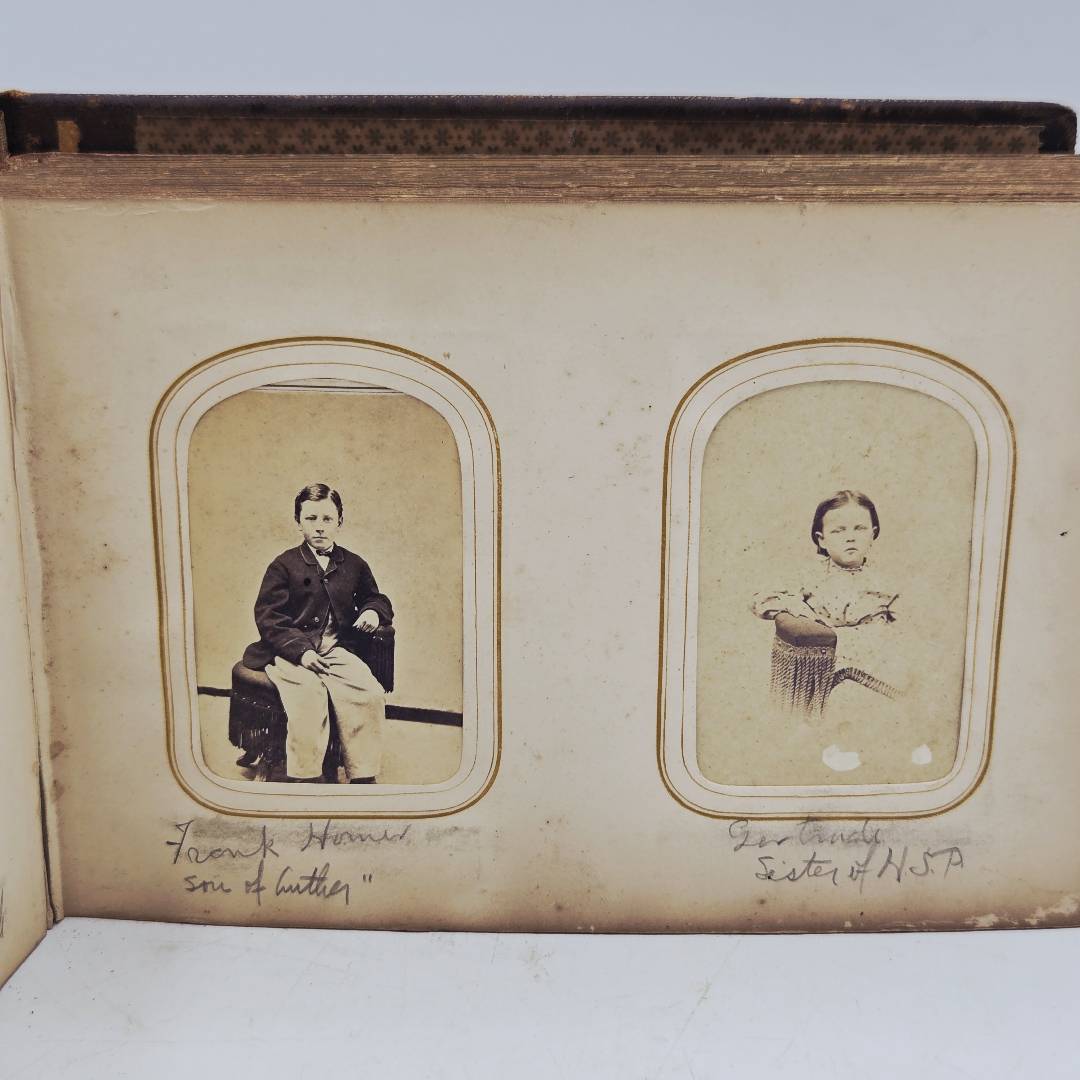 Frank Homer
son of Luther "
Gertrude
Sister of H.S.P.